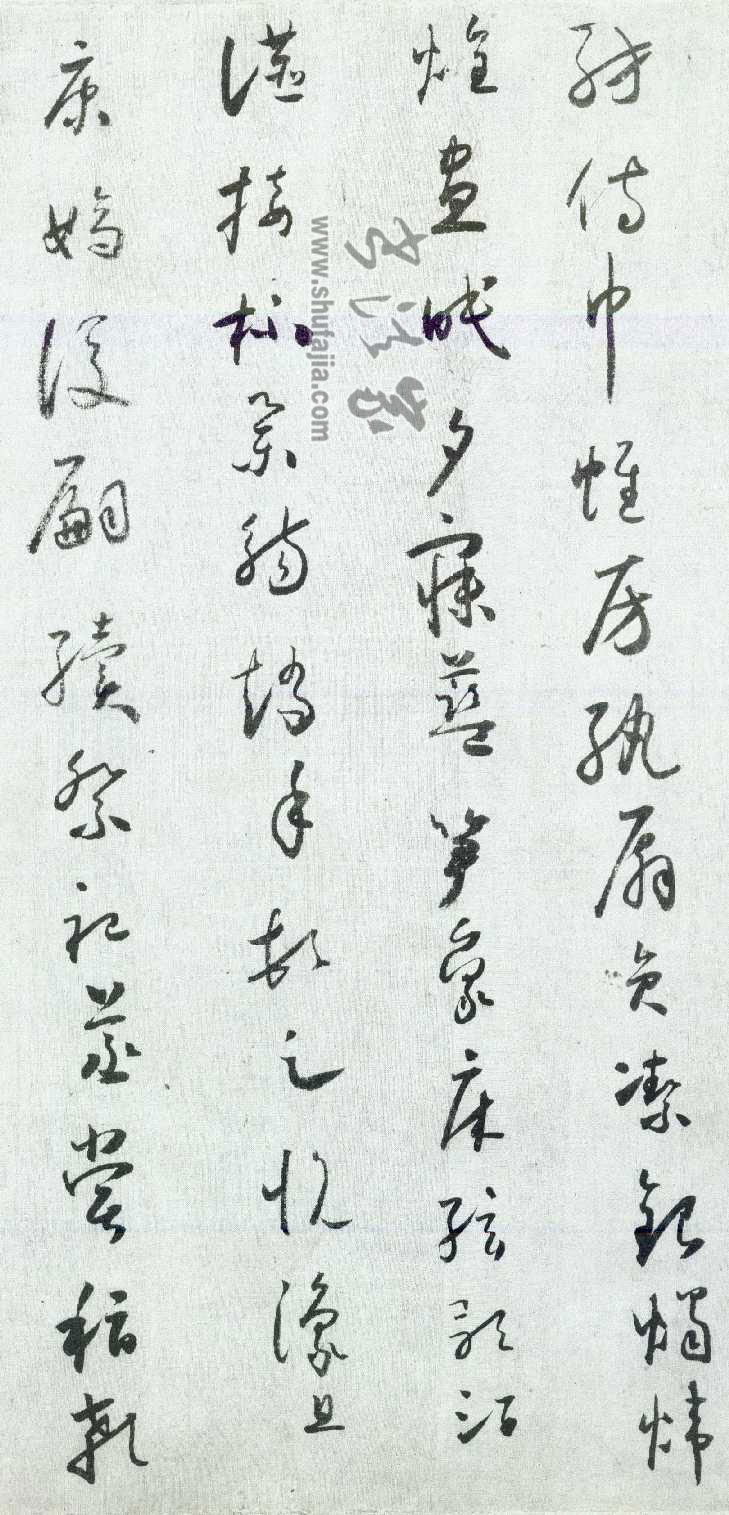 紡侍巾帷房紈扇員潔銀燭煒
煌晝眠夕寐藍笋象床弦歌酒
讌接杯舉觴矯手頓足悅豫且
康嫡後嗣續祭祀蒸嘗稽顙
书法家
www.shufajia.com